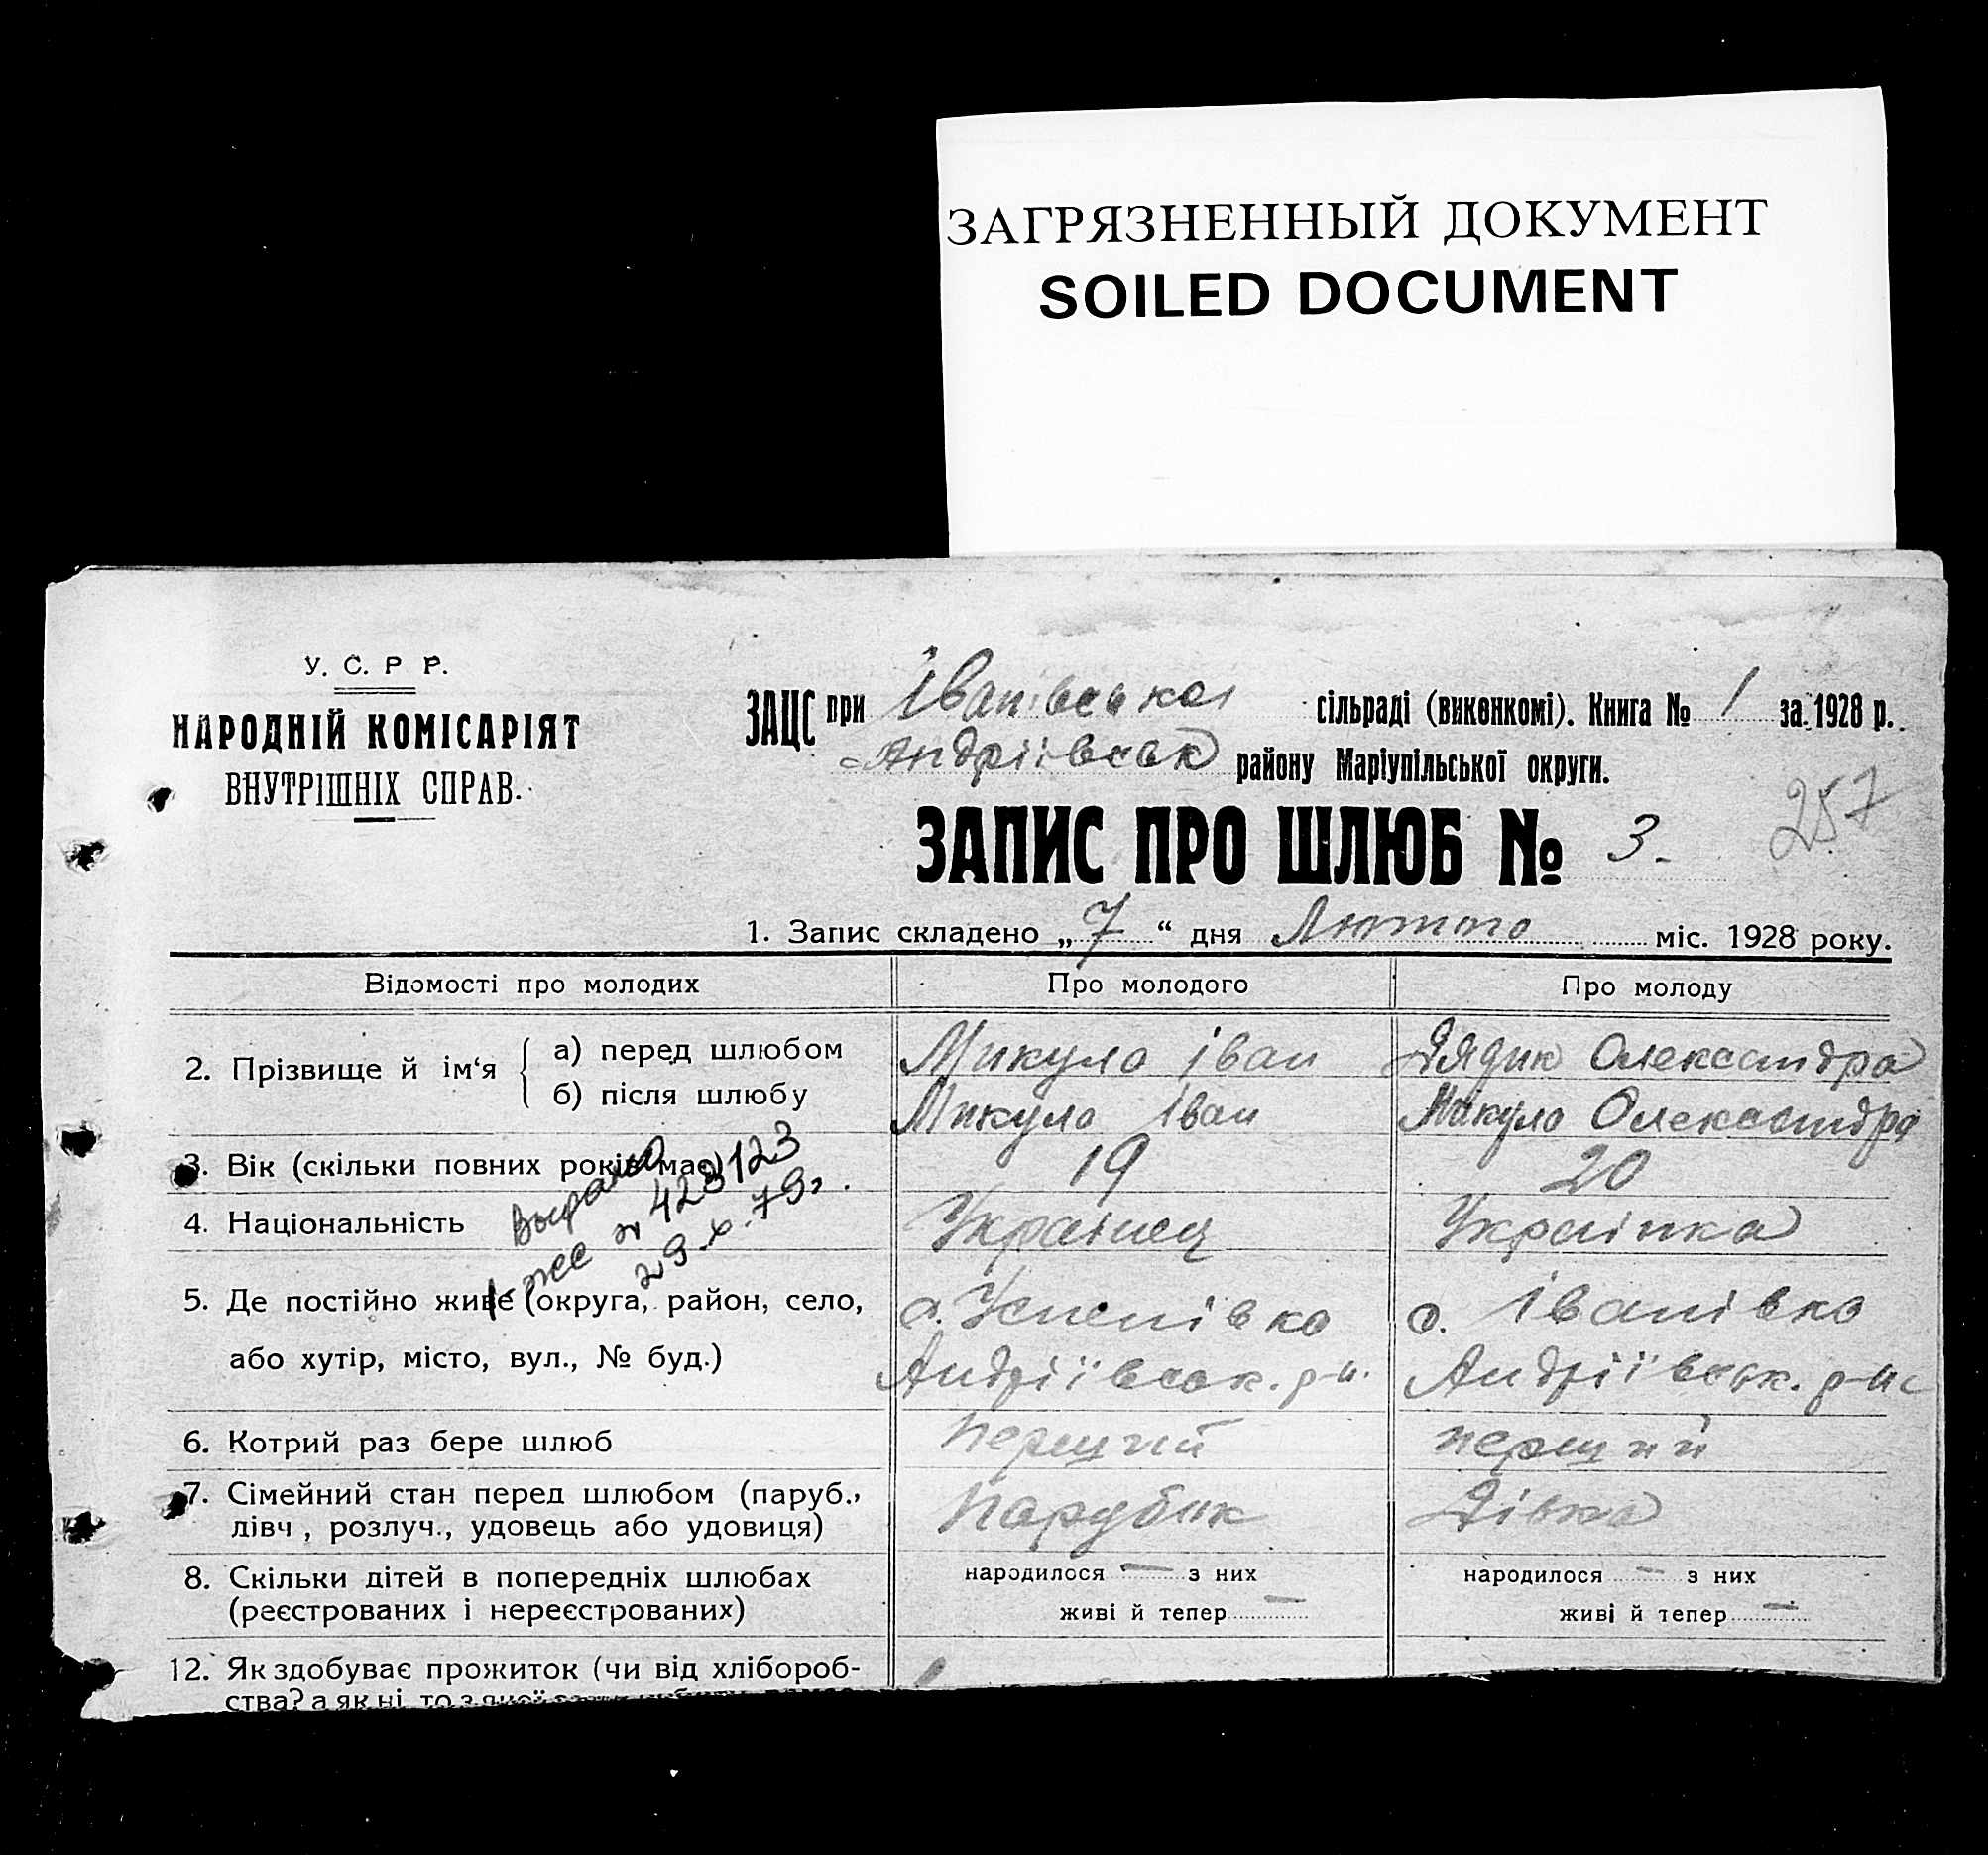 ЗАГРЯЗНЕННЫЙ ДОКУМЕНТ
SOILED DOCUMENT
У. С. Р Р.
НАРОДНІЙ КОМІСАРІЯТ
ВНУТРІШНІХ СПРАВ.
ЗАЦС при Іванівська сільраді (викенкомі). Книга № 1 за 1928 р.
Андріївськ району Маріупільської округи.
257
ЗАПИС ПРО ШЛЮБ № 3.
1. Запис складено „7“ дня Лютого міс. 1928 року.
Відомості про молодих Про молодого Про молоду
2. Прізвище й ім‘я { а) перед шлюбом Микула Іван Дядик Олександра
б) після шлюбу Микула Іван Микула Олександра
3. Вік (скільки повних років має) 19 20
4. Національність Українец Українка
Выдано
№ 423123
29-х-79г.
5. Де постійно живе (округа, район, село, с. Успенівка с. Іванівка
або хутір, місто, вул., № буд.) Андріївськ. р-н. Андріївськ. р-н
6. Котрий раз бере шлюб перший перший
7. Сімейний стан перед шлюбом (паруб., Парубок Дівка
лівч , розлуч., удовець або удовиця)
8. Скільки дітей в попередніх шлюбах народилося — з них народилося — з них
(реєстрованих і нереєстрованих) живі й тепер — живі й тепер —
12. Як здобуває прожиток (чи від хлібороб-
ства? а як ні, то з якої